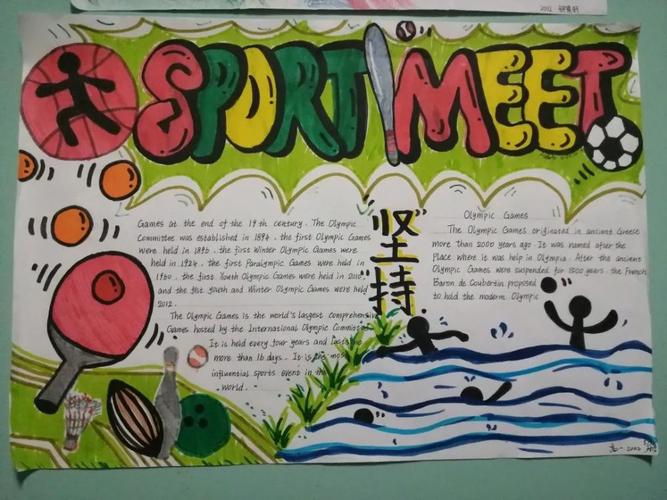 SPORT MEET
Games at the end of the 19th century. The Olympic
Committee was established in 1894. the first Olympic Games
were held in 1896. the first Winter Olympic Games were
held in 1924. the first Paralympic Games were held in
1960. the first Youth Olympic Games were held in 2010,
and the 1st Youth and Winter Olympic Games were held
2012.
The Olympic Games is the world's largest comprehensive
Games hosted by the International Olympic Committee
It is held every four years and lasts
more than 16 days. It is the most
influential sports event in the
world.
坚持
Olympic Games
The Olympic Games originated in ancient Greese
more than 2000 years ago. It was named after the
Place where it was help in Olympia. After the ancient
Olympic Games were suspended for 1500 years. the French
Baron de Coubertin proposed
to hold the modern Olympic